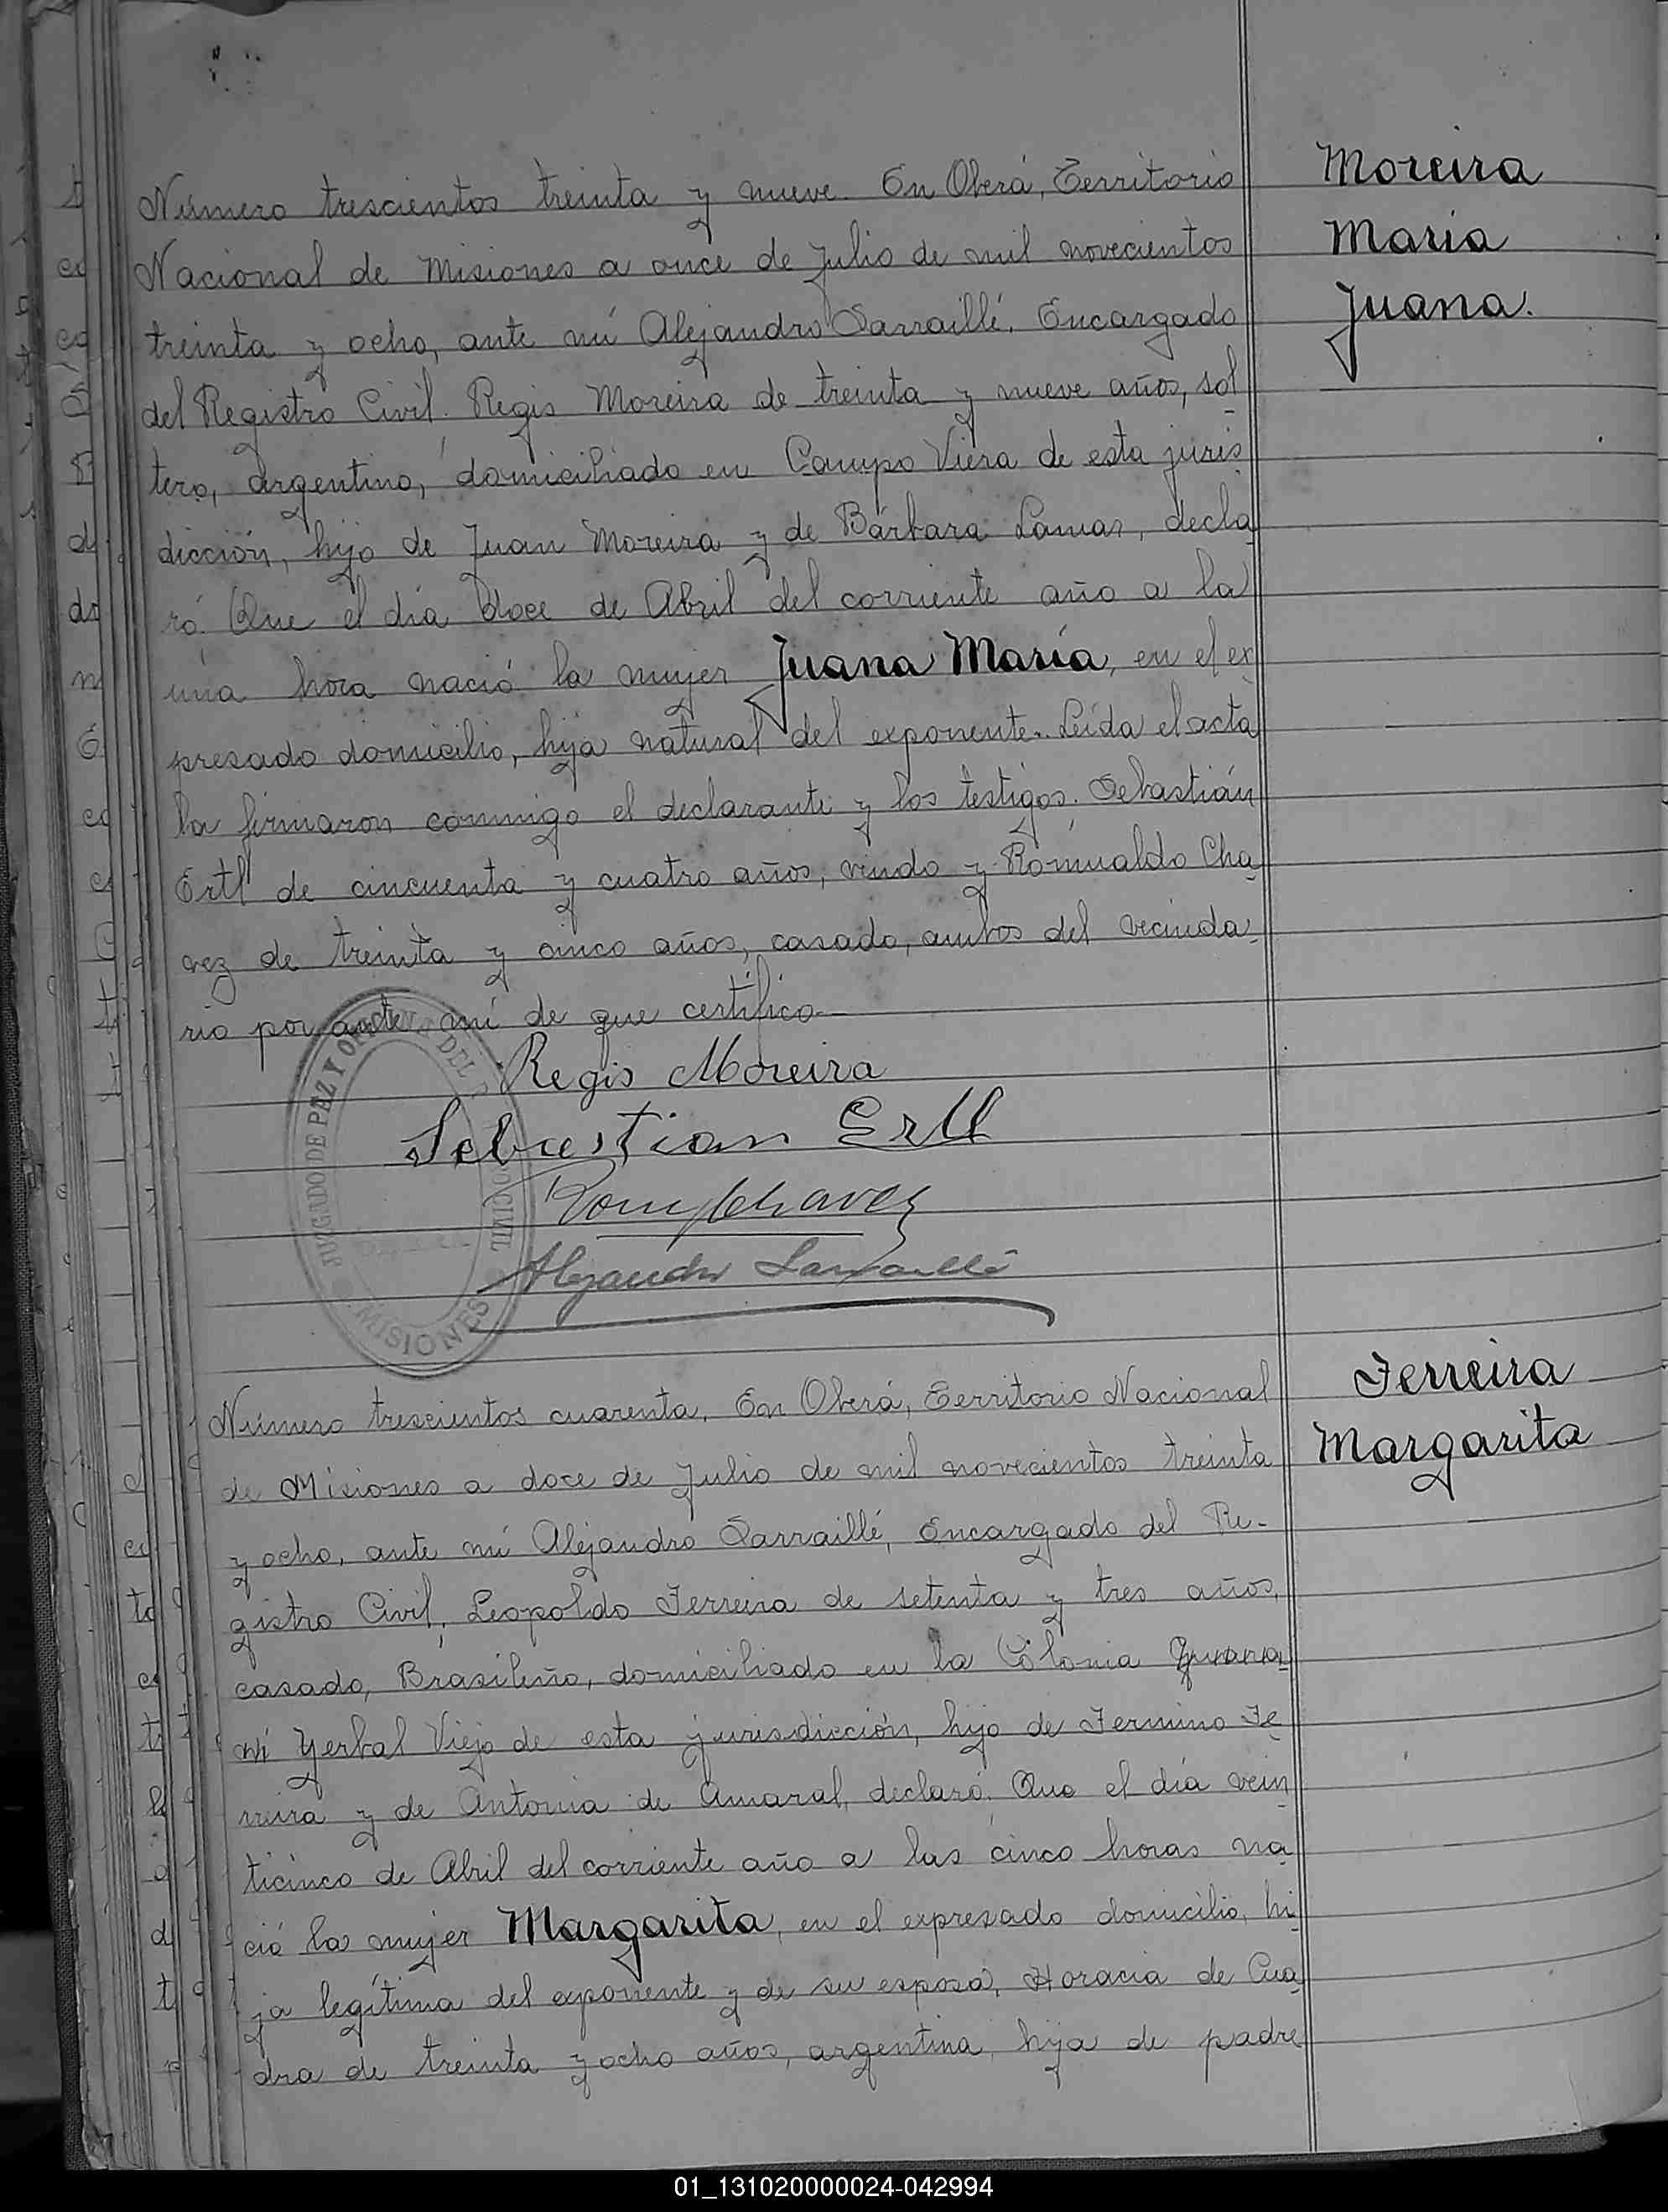 Número trescientos treinta y nueve. En Oberá, Territorio
Nacional de Misiones a once de Julio de mil novecientos
treinta y ocho, ante mí Alejandro Sarraillé, Encargado
del Registro Civil. Regis Moreira de treinta y nueve años, sol
tero, argentino, domiciliado en Campo Viera de esta juris
dicción, hijo de Juan Moreira y de Bárbara Lamas, decla
ró. Que el día doce de Abril del corriente año a la
una hora nació la mujer Juana María, en el ex
presado domicilio, hija natural del exponente. Leída el acta
la firmaron conmigo el declarante y los testigos. Sebastián
Ertl de cincuenta y cuatro años, viudo y Romualdo Cha
vez de treinta y cinco años, casado, ambos del vecinda
rio por ante mí de que certifico
Moreira
María
Juana.
Regis Moreira
Sebastian Ertl
Rom Chavez
Alejandro Sarraillé
JUZGADO DE PAZ Y OFICINA DEL R CIVIL
MISIONES
Número trescientos cuarenta. En Oberá, Territorio Nacional
de Misiones a doce de Julio de mil novecientos treinta
y ocho, ante mí Alejandro Sarraillé, Encargado del Re-
gistro Civil, Leopoldo Ferreira de setenta y tres años,
casado, Brasileño, domiciliado en la Colonia Guara
ní Yerbal Viejo de esta jurisdicción, hijo de Fermino Fe
rreira y de Antonia de Amaral, declaró. Que el día vein
ticinco de Abril del corriente año a las cinco horas na
ció la mujer Margarita, en el expresado domicilio, hi
ja legítima del exponente y de su esposa, Horacia de Cua
dra de treinta y ocho años, argentina, hija de padre
Ferreira
Margarita
01_131020000024-042994